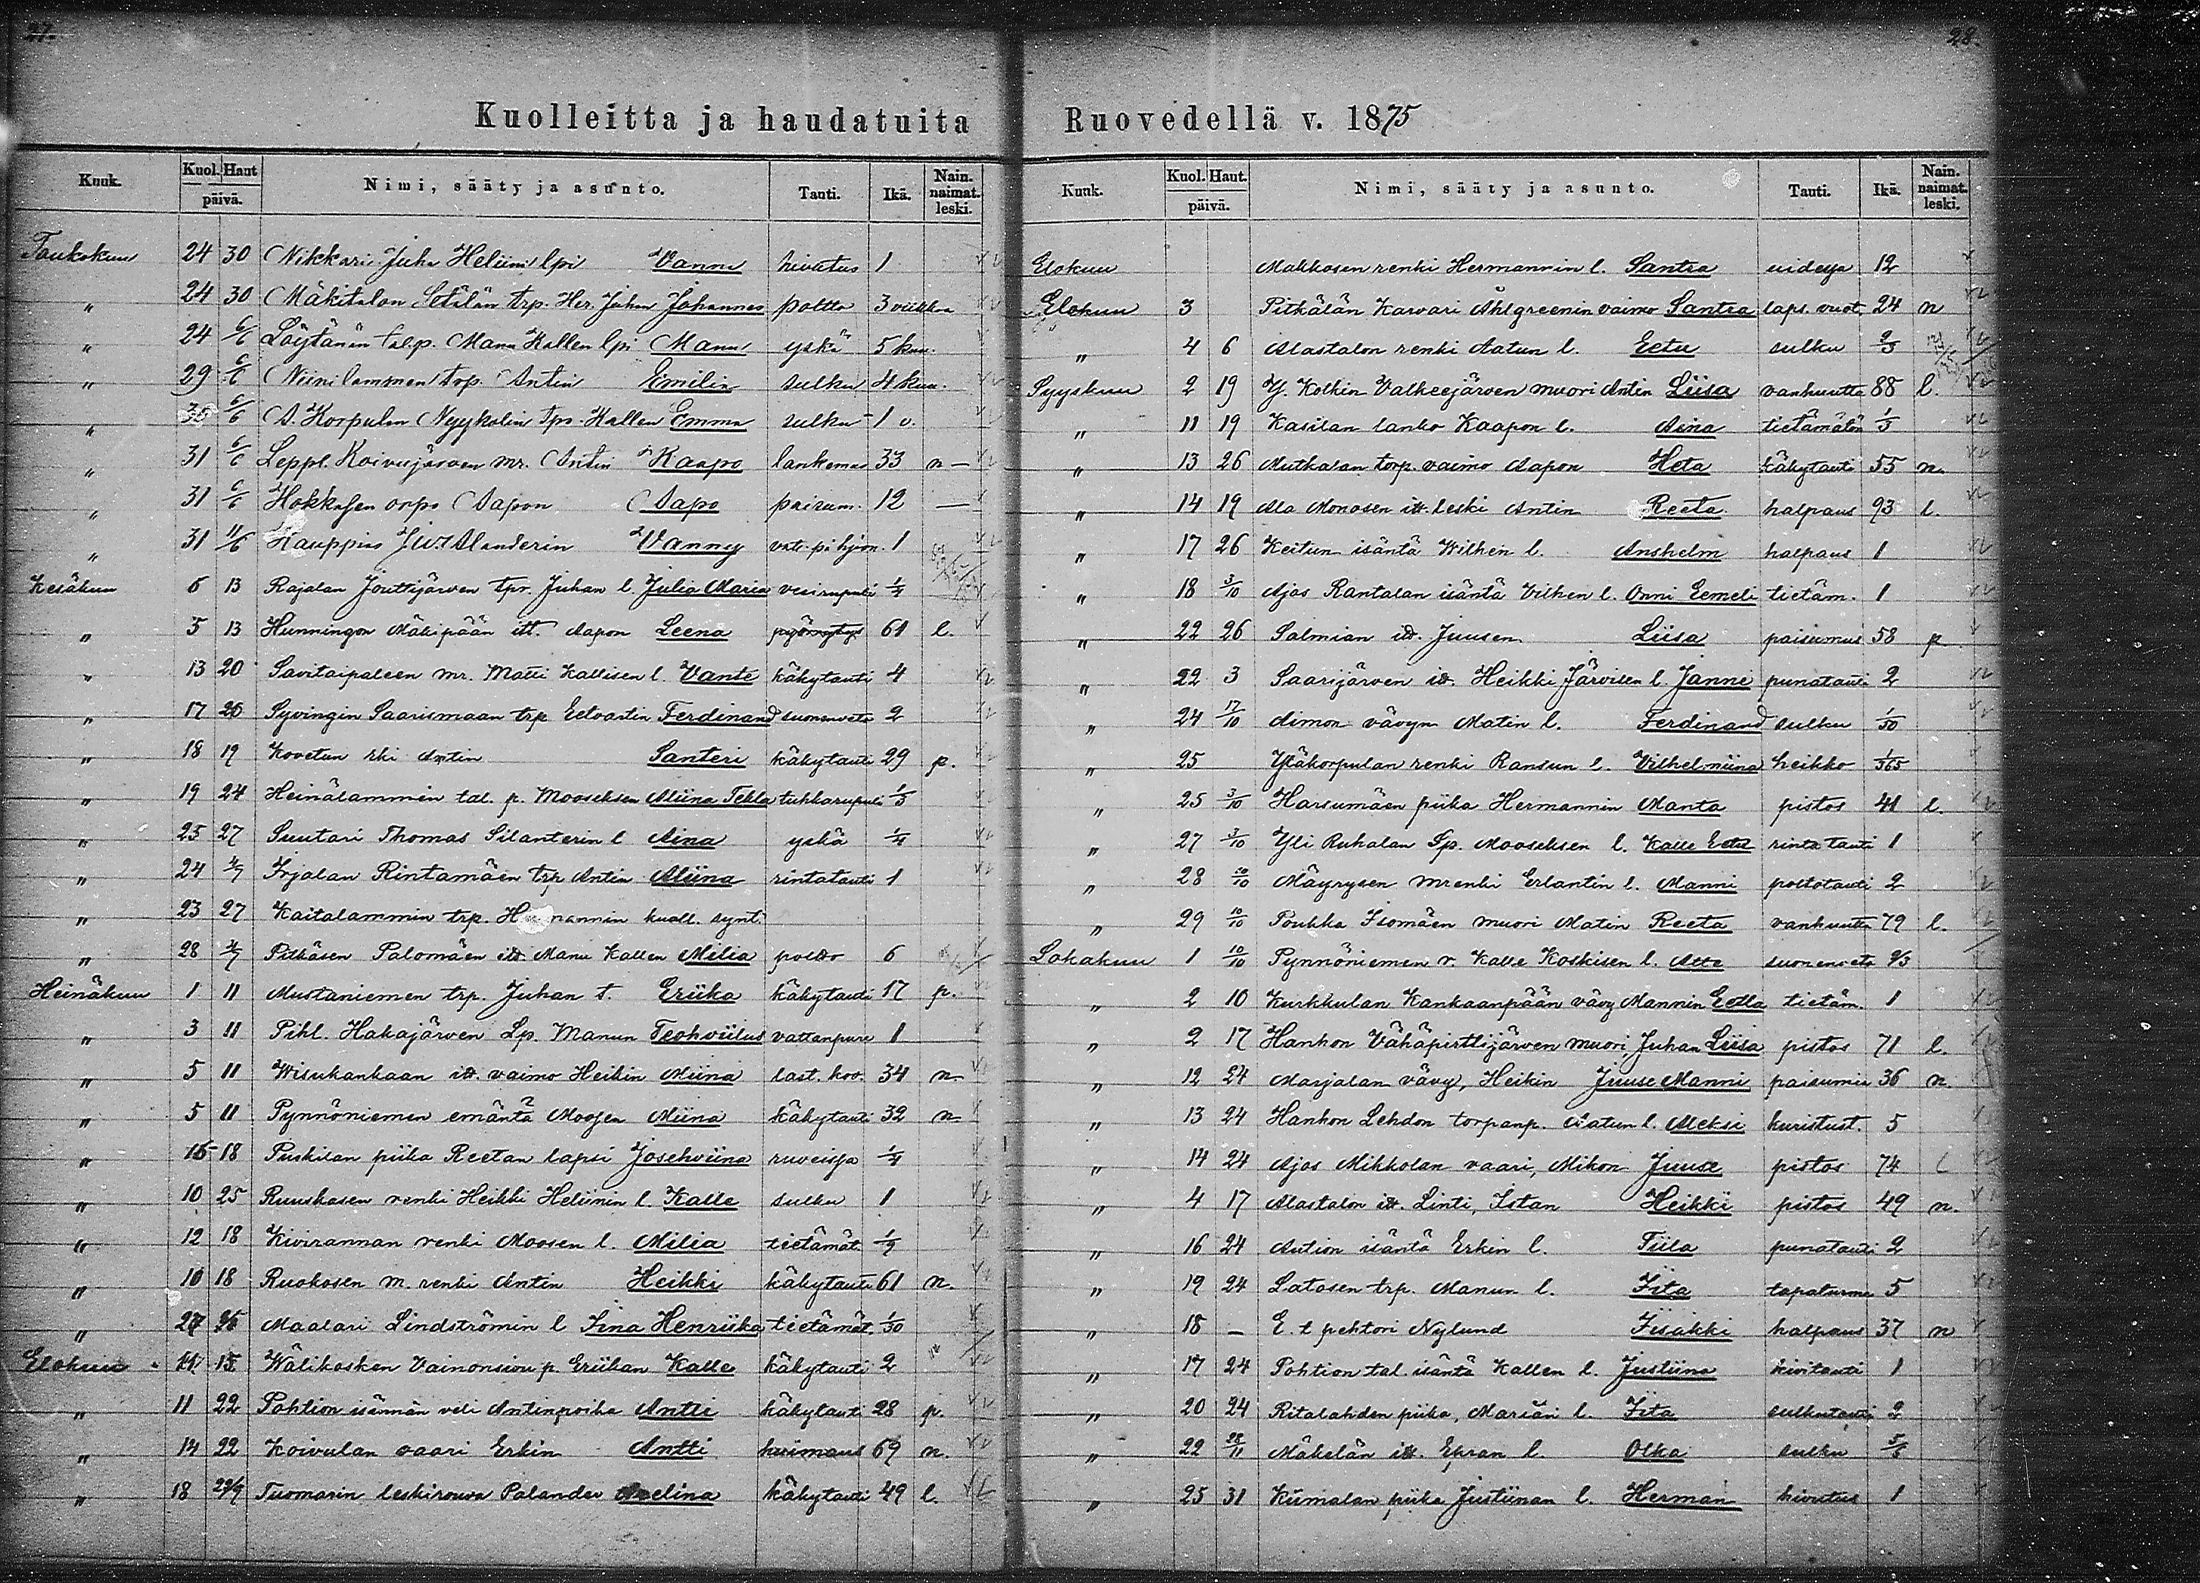 27.
28.
Kuolleitta ja haudatuita Ruovedellä v. 1875
Kuuk. Kuol. Haut päivä. Nimi, sääty ja asunto. Tauti. Ikä. Nain. naimat. leski.
Toukokuu 24 30 Nikkari Juha Heliini lpi Vanni hivutus 1
" 24 30 Mäkitalon Setälän trp. Her. Juhan Johannes poltto 3 viikkoa
" 24 6/6 Löytänän tal.p. Manu Kallen lpi Manu yskä 5 kuu.
" 29 6/6 Niinilammen trp. Antin Emilia sulku 4 kuu.
" 30 6/6 A. Korpulan Nyykolin tpr. Kallen Emma sulku 1 v.
" 31 6/6 Leppl. Koivujärven mr. Antin Kaapo lankemus 33 n
" 31 6/6 Hokkasen orpo Aapon Aapo paisum. 12 —
" 31 11/6 Kauppias Alanderin Vanny 1
Kesäkuu 6 13 Rajalan Jouttijärven tpr. Juhan l. Julia Maria vesirupuli 1/4
" 5 13 Hunningon Mäkipään itt. Aapon Leena 61 l.
" 13 20 Savitaipaleen mr. Matti Kallisen l. Vante käkytauti 4
" 17 20 Syvingin Saarismaan trp. Eetvartin Ferdinand suonenveto 2
" 18 19 Kovetun rki Antin Santeri käkytauti 29 p.
" 19 24 Heinälammin tal. p. Mooseksen Miina Tekla tuhkarupuli 1/3
" 25 27 Suutari Thomas Silanterin l Aina yskä 1/4
" 24 4/7 Irjalan Rintamäen trp Antin Miina rintatauti 1
" 23 27 Kaitalammin trp. Hermannin kuoll. synt.
" 28 4/7 Pitkäsen Palomäen itt. Manu Kallen Milia poldo 6
Heinäkuu 1 11 Mustaniemen trp. Juhan t. Eriika käkytauti 17 p.
" 3 11 Pihl. Hakajärven Lp. Manun Teohviilus vattanpure 1
" 5 11 Wisukankaan itt. vaimo Heikin Miina last. koo. 34 n.
" 5 11 Pynnöniemen emäntä Moosen Miina käkytauti 32 n.
" 15 18 Puskilan piika Reetan lapsi Josehviina ruveissa 1/4
" 10 25 Ruuskasen renki Heikki Heliinin l. Kalle sulku 1
" 12 18 Kivirannan renki Moosen l. Milia tietämät.
" 10 18 Ruokosen m. renki Antin Heikki käkytauti 61 n.
" 27 Maalari Lindströmin l Iina Henriika tietämät. 1/30
Elokuu 15 Wälikosken Vainonsivu p. Eriikan Kalle käkytauti 2
" 11 22 Pohtion isännän veli Antinpoika Antti käkytauti 28 p.
" 14 22 Koivulan vaari Erkin Antti huimaus 69 n.
" 18 Tuomarin leskirouva Palander käkytauti 49 l.
Kuuk. Kuol. Haut. päivä. Nimi, sääty ja asunto. Tauti. Ikä. Nain. naimat. leski.
Elokuu Makkosen renki Hermannin l. Santra uidessa 12
Elokuu 3 Pitkälän Karvari Ählgreenin vaimo Santra laps. vuot. 24 n
" 4 6 Alastalon renki Aatun l. Eetu sulku 2/3
Syyskuu 2 19 Y. Kolkin Valkeejärven muori Antin Liisa vanhuutta 88 l.
" 11 19 Kasilan lanko Kaapon l. Aina tietämätön 1/3
" 13 26 Mutkalan torp. vaimo Aapon Heta käkytauti 55 n.
" 14 19 Ala Monosen itt. leski Antin Reeta halpaus 93 l.
" 17 26 Keitun isäntä Wilhen l. Anshelm halpaus 1
" 18 3/10 Ajos Rantalan isäntä Vilhen l. Onni Eemeli tietäm. 1
" 22 26 Salmian itt. Juusen Liisa paisumus 58 p
" 22 3 Saarijärven itt. Heikki Järvisen l. Janne punatauti 2
" 24 17/10 Aimon vävyn Matin l. Ferdinand sulku 1/50
" 25 Yläkorpulan renki Ransun l. Vilhelmiina heikko 1/365
" 25 3/10 Harsumäen piika Hermannin Manta pistos 41 l.
" 27 3/10 Yli Ruhalan Lp. Mooseksen l. Kalle Eetu rinta tauti 1
" 28 10/10 Mäyrysen mrenki Erlantin l. Manni poltotauti 2
" 29 10/10 Poukka Isomäen muori Matin Reeta vanhuutta 79 l.
Lokakuu 1 10/10 Pynnöniemen r. Kalle Koskisen l. Atte suonenveto 2/3
" 2 10 Kurkkulan Kankaanpään vävy Mannin Eetla tietäm. 1
" 2 17 Hankon Vähäpirttijärven muori, Juhan Liisa pistos 71 l.
" 12 24 Marjalan vävy, Heikin Juuse Manni paisumia 36 n.
" 13 24 Hankon Lehdon torpanp. Aatun l. Aleksi kuristust. 5
" 14 24 Ajos Mikkolan vaari, Mikon Juuse pistos 74 l
" 4 17 Alastalon itt. Linti, Istan Heikki pistos 49 n.
" 16 24 Aution isäntä Erkin l. Tiila punatauti 2
" 19 24 Latosen trp. Manun l. Iita tapaturma 5
" 18 — E. t pehtori Nylund Iisakki halpaus 37 n
" 17 24 Pohtion tal. isäntä Kallen l. Justiina kivitauti 1
" 20 24 Ritalahden piika, Marian l. Iita sulkutauti 2
" 22 28/11 Mäkelän itt. Epran l. Olka sulku 5/6
" 25 31 Kiimalan piika Justiinan l. Herman hivutus 1